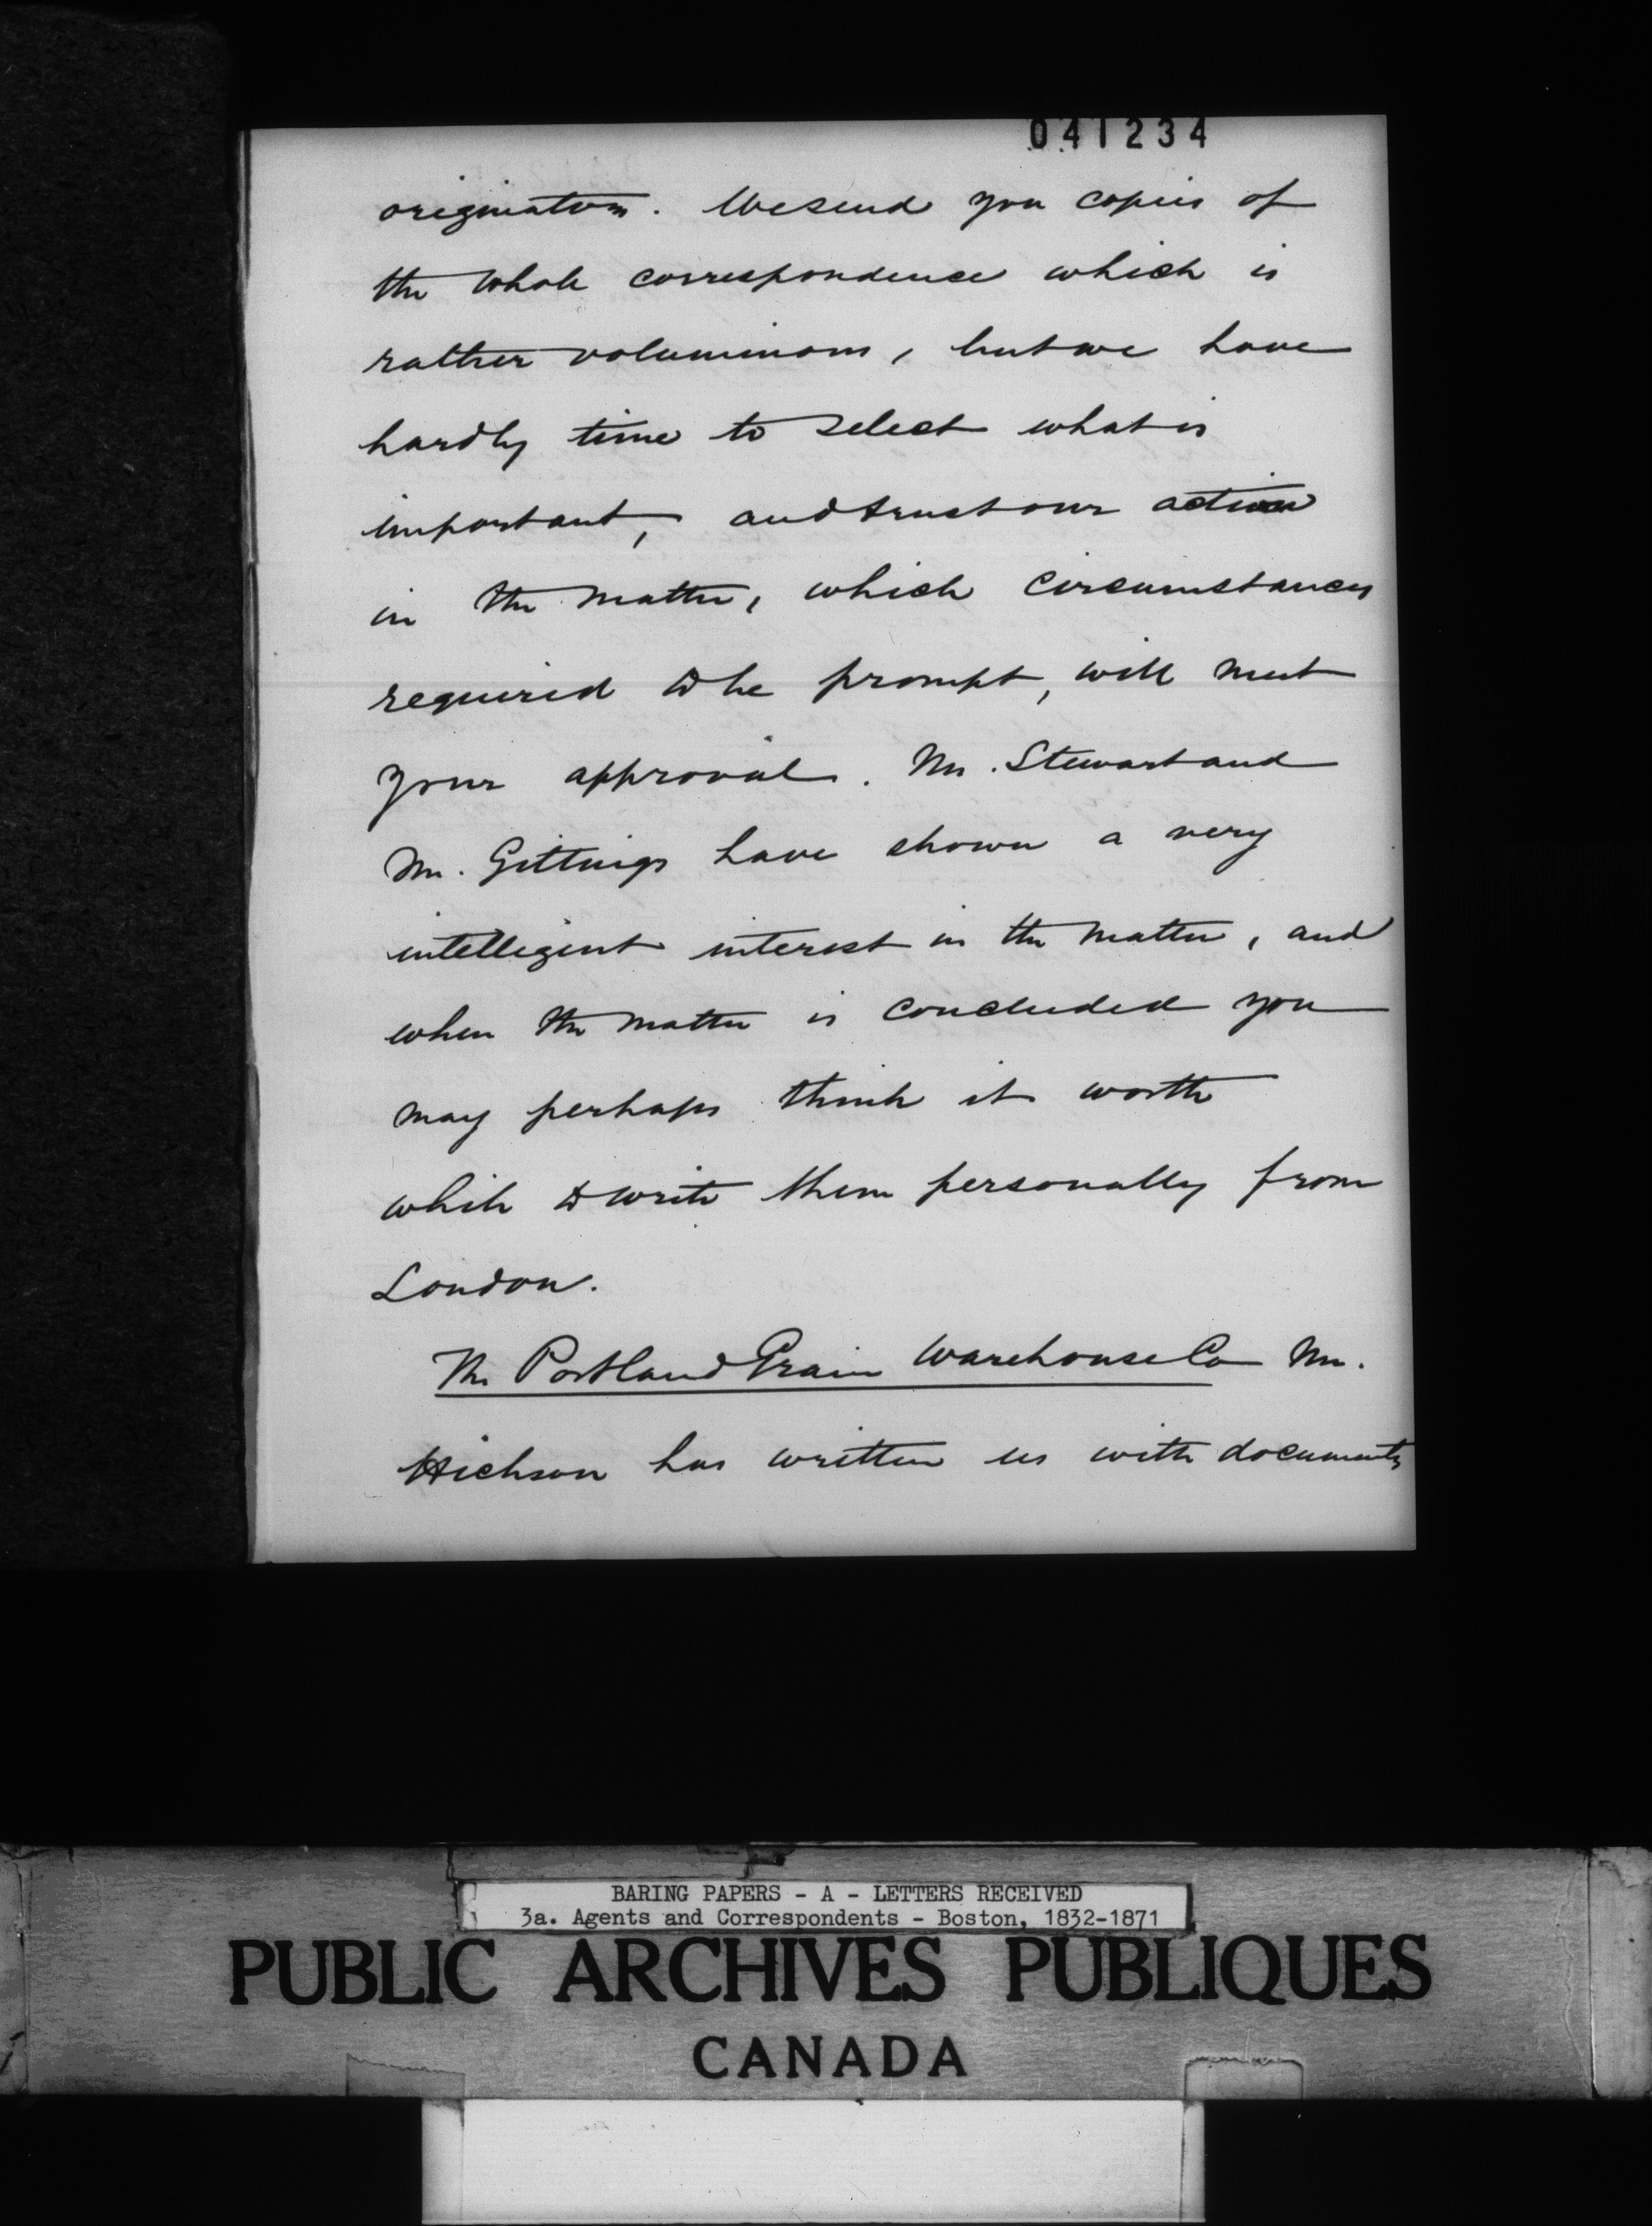 041234
originators. We send you copies of
the whole correspondence which is
rather voluminous, but we have
hardly time to select what is
important, and trust our action
in the matter, which circumstances
required to be prompt, will meet
your approval. Mr. Stewart and
Mr. Gittings have shown a very
intelligent interest in the matter, and
when the matter is concluded you
may perhaps think it worth
while to write them personally from
London.
The Portland Grain Warehouse Co Mr.
Hickson has written us with documents
BARING PAPERS - A - LETTERS RECEIVED
3a. Agents and Correspondents - Boston, 1832-1871
PUBLIC ARCHIVES PUBLIQUES
CANADA